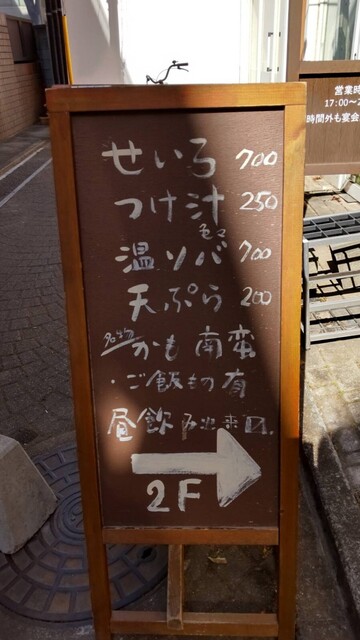 せいろ 700
つけ汁 250
色々
温ソバ 700
天ぷら 200
かも南蛮
・ご飯もの有
昼飲み出来〼.
2F
営業時
17:00〜2
時間外も宴会